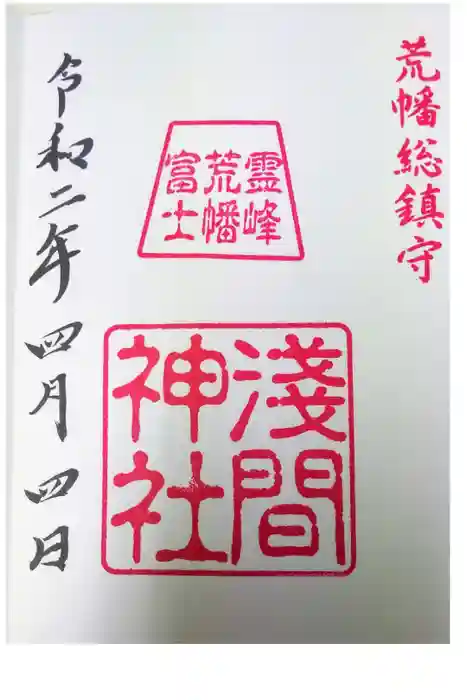 荒幡総鎮守
霊峰
荒幡
富士
淺間
神社
令和二年四月四日